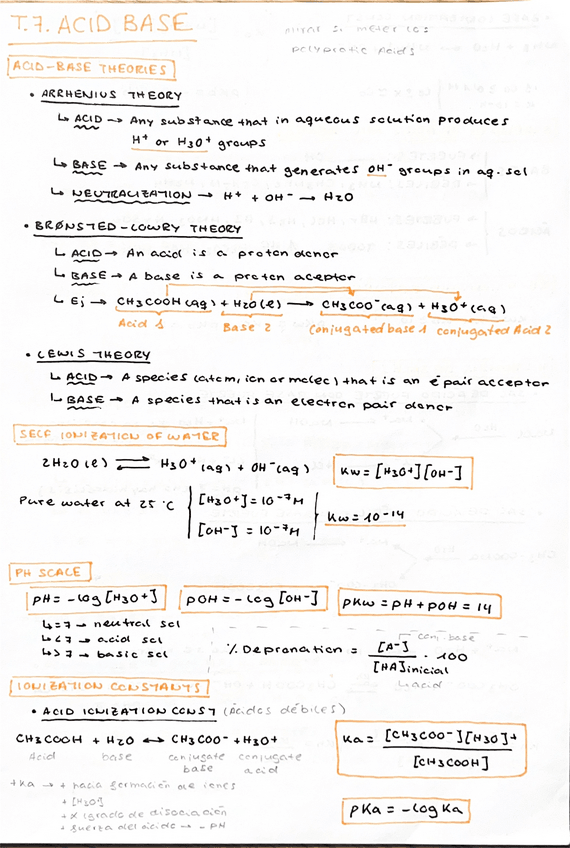 T.7. ACID BASE
mirar si meter los
polyprotic Acids
ACID-BASE THEORIES
• ARRHENIUS THEORY
↳ ACID → Any substance that in aqueous solution produces
H+ or H3O+ groups
↳ BASE → Any substance that generates OH- groups in aq. sol
↳ NEUTRALIZATION → H+ + OH- → H2O
• BRØNSTED-LOWRY THEORY
↳ ACID → An acid is a proton donor
↳ BASE → A base is a proton aceptor
↳ Ej → CH3COOH (aq) + H2O (l) → CH3COO- (aq) + H3O+ (aq)
Acid 1 Base 2 Conjugated base 1 conjugated Acid 2
• LEWIS THEORY
↳ ACID → A species (atom, ion or molec) that is an e- pair acceptor
↳ BASE → A species that is an electron pair donor
SELF IONIZATION OF WATER
2H2O (l) ⇌ H3O+ (aq) + OH- (aq) Kw = [H3O+][OH-]
Pure water at 25 °C [H3O+] = 10-7 M
[OH-] = 10-7 M
Kw = 10-14
PH SCALE
pH = -log [H3O+] pOH = -log [OH-] pKw = pH + pOH = 14
↳ = 7 → neutral sol
↳ < 7 → acid sol
↳ > 7 → basic sol
conj. base
% Depronation = [A-] / [HA]inicial · 100
↳ acid
IONIZATION CONSTANTS
• ACID IONIZATION CONST (Ácidos débiles)
CH3COOH + H2O ↔ CH3COO- + H3O+
Acid base conjugate base conjugate acid
Ka = [CH3COO-][H3O]+ / [CH3COOH]
+ Ka → + hacia formación de iones
+ [H3O]
+ α (grado de disociación
+ fuerza del ácido → - PH
pKa = -log Ka